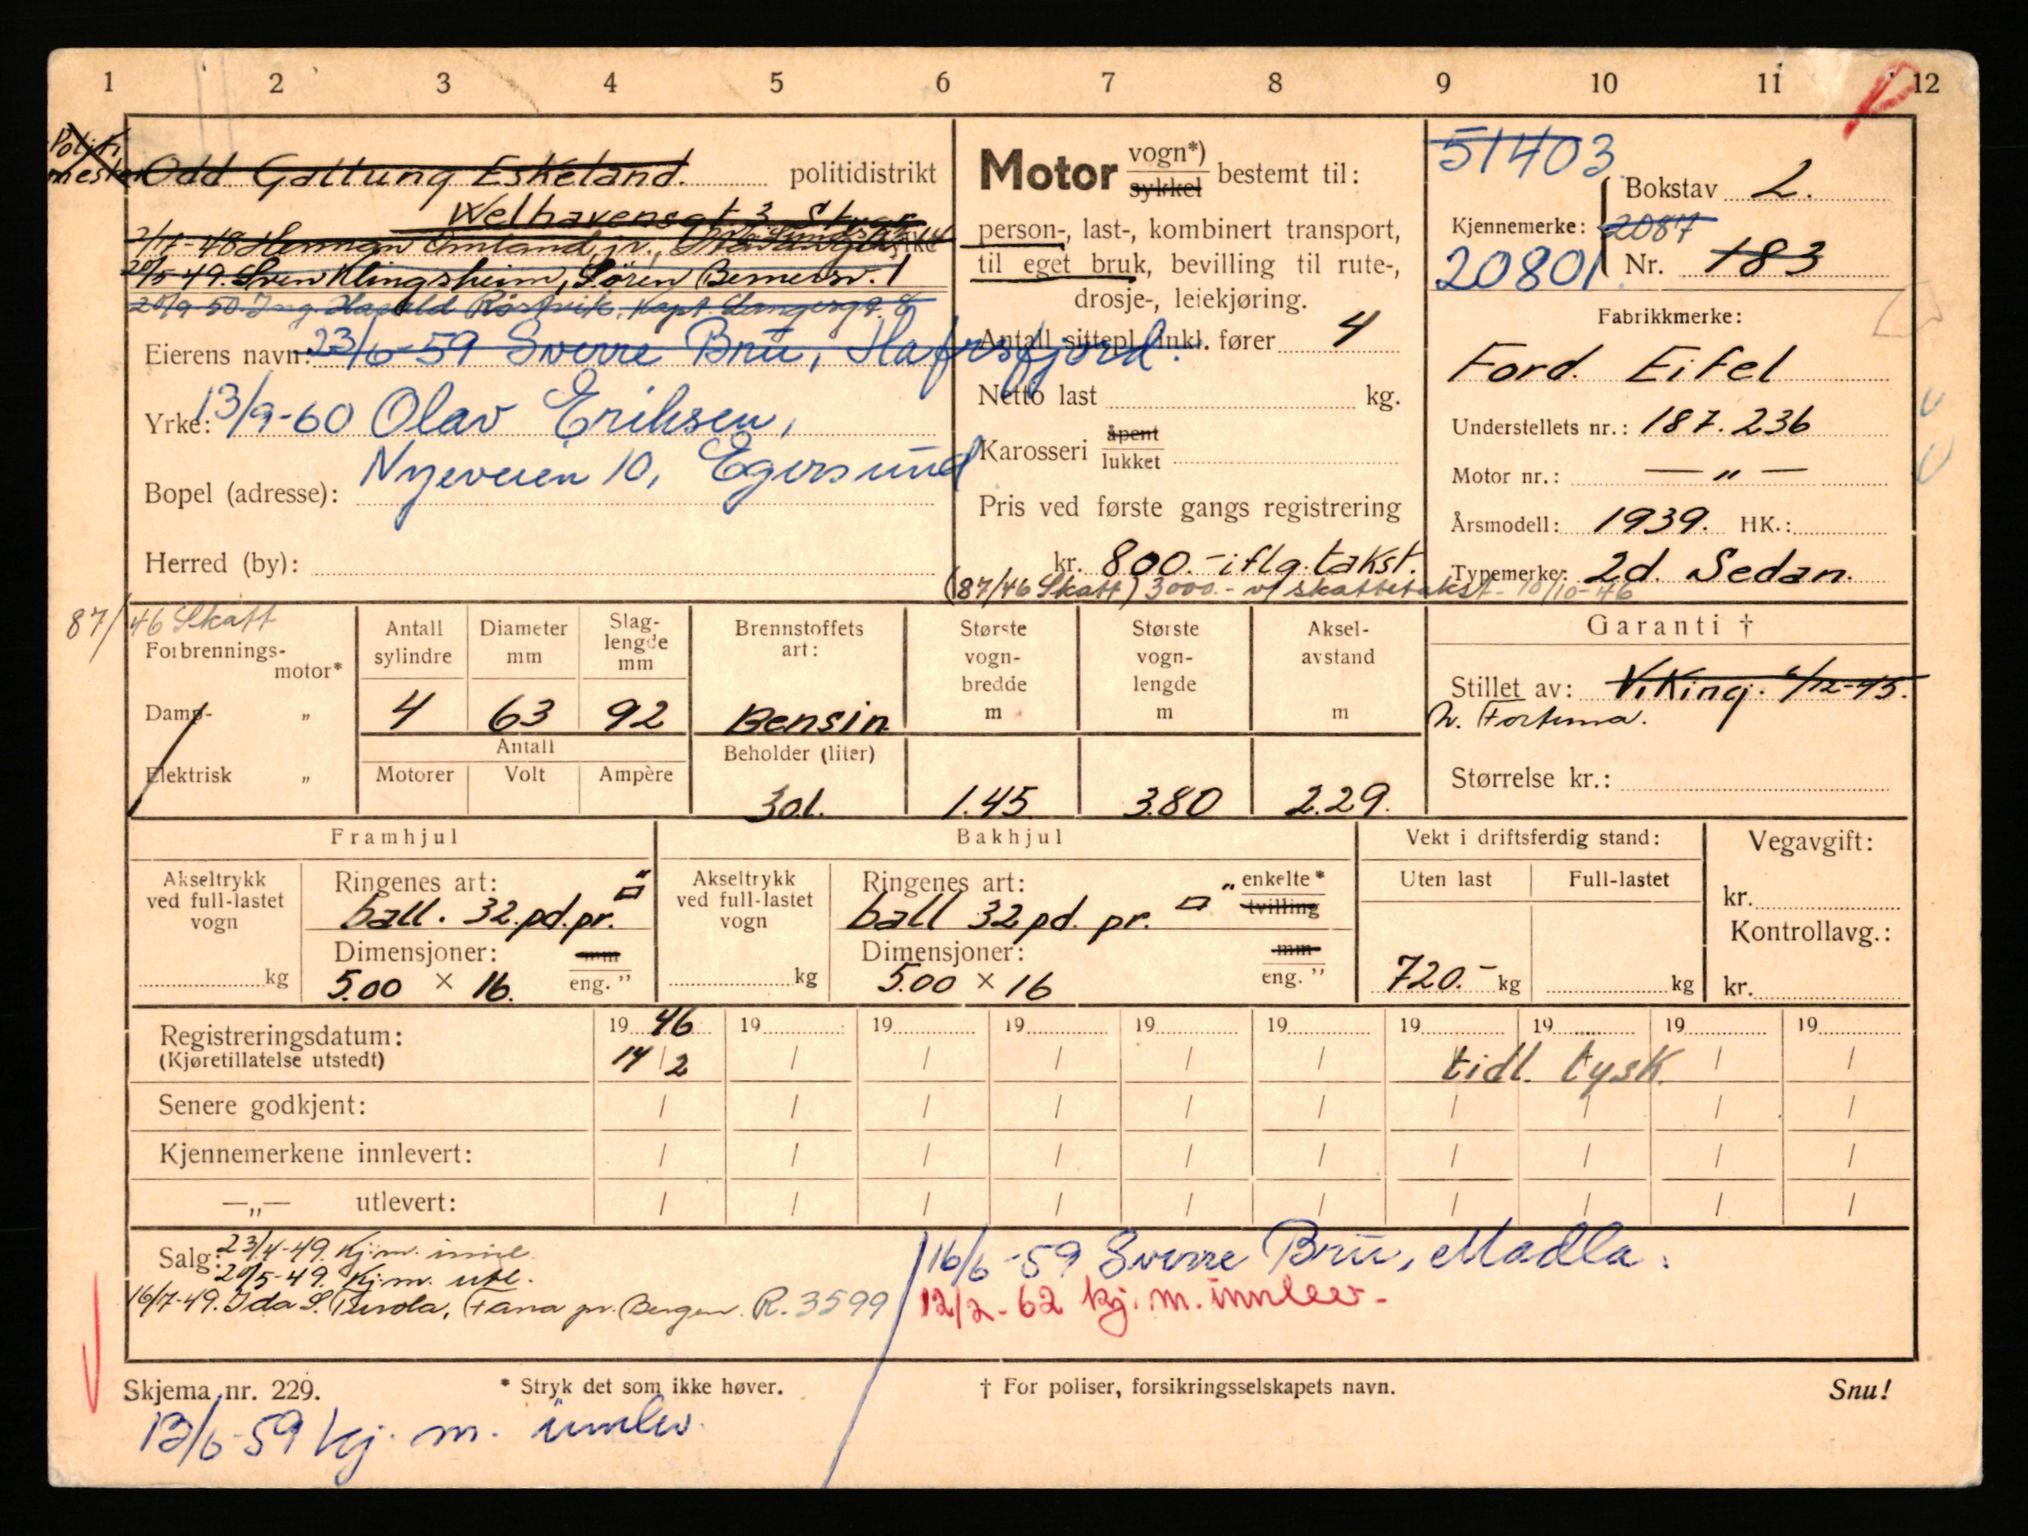 1 2 3 4 5 6 7 8 9 10 11 12
Politi
mester Odd Gattung Eskeland. politidistrikt
Welhavensgt 3
2/7-48 Herman Omland jr.,
20/5-49. Sven Klingsheim, Sören Berners v. 1
20/9-50. Ing. Harald Røstvik, Kapt. Langesgt. 8
Eierens navn: 23/6-59 Sverre Brü, Hafrsfjord.
Yrke: 13/9-60 Olav Eriksen,
Nyeveien 10, Egersund
Bopel (adresse):
Herred (by):
Motor vogn*) sykkel bestemt til:
person-, last-, kombinert transport,
til eget bruk, bevilling til rute-,
drosje-, leiekjøring.
Antall sittepl. inkl. fører 4
Netto last kg.
Karosseri åpent lukket
Pris ved første gangs registrering
kr. 800.- iflg. takst.
(87/46 Skatt) 3000.- v/ skattetakst 10/10-46
51403
Bokstav L.
Kjennemerke: 2087
20801 Nr. 183
Fabrikkmerke:
Ford Eifel
Understellets nr.: 187.236
Motor nr.: — „ —
Årsmodell: 1939. HK.:
Typemerke: 2d. Sedan.
87/46 Skatt
Forbrennings-
motor*
Damp- „
Elektrisk „
Antall sylindre
4
Diameter mm
63
Slag-lengde mm
92
Antall
Motorer Volt Ampère
Brennstoffets art:
Bensin
Beholder (liter)
30 l.
Største vogn-bredde m
1.45
Største vogn-lengde m
3.80
Aksel-avstand m
2.29.
Garanti †
Stillet av: Viking. 6/12-45.
N. Fortuna.
Størrelse kr.:
Framhjul
Akseltrykk ved full-lastet vogn
kg
Ringenes art:
ball. 32 pd. pr. □"
Dimensjoner: mm
5.00 × 16. eng. ”
Bakhjul
Akseltrykk ved full-lastet vogn
kg
Ringenes art: enkelte* tvilling
ball 32 pd. pr. □"
Dimensjoner: mm
5.00 × 16 eng. ”
Vekt i driftsferdig stand:
Uten last Full-lastet
720.- kg kg
Vegavgift:
kr.
Kontrollavg.:
kr.
Registreringsdatum: 19 46 19 19 19 19 19 19 19 19 19
(Kjøretillatelse utstedt) 14/2 / / / / / tidl. tysk. / /
Senere godkjent: / / / / / / / / / /
Kjennemerkene innlevert: / / / / / / / / / /
—„— utlevert: / / / / / / / / / /
Salg: 23/4-49. Kj.m. innl.
20/5-49. Kj.m. utl.
16/7-49. Ida S. Fana pr. Bergen. R. 3599
16/6-59 Sverre Brü, Madla.
12/2-62 kj. m. innlev-
Skjema nr. 229. * Stryk det som ikke høver. † For poliser, forsikringsselskapets navn. Snu!
13/6-59 kj. m. innlev.